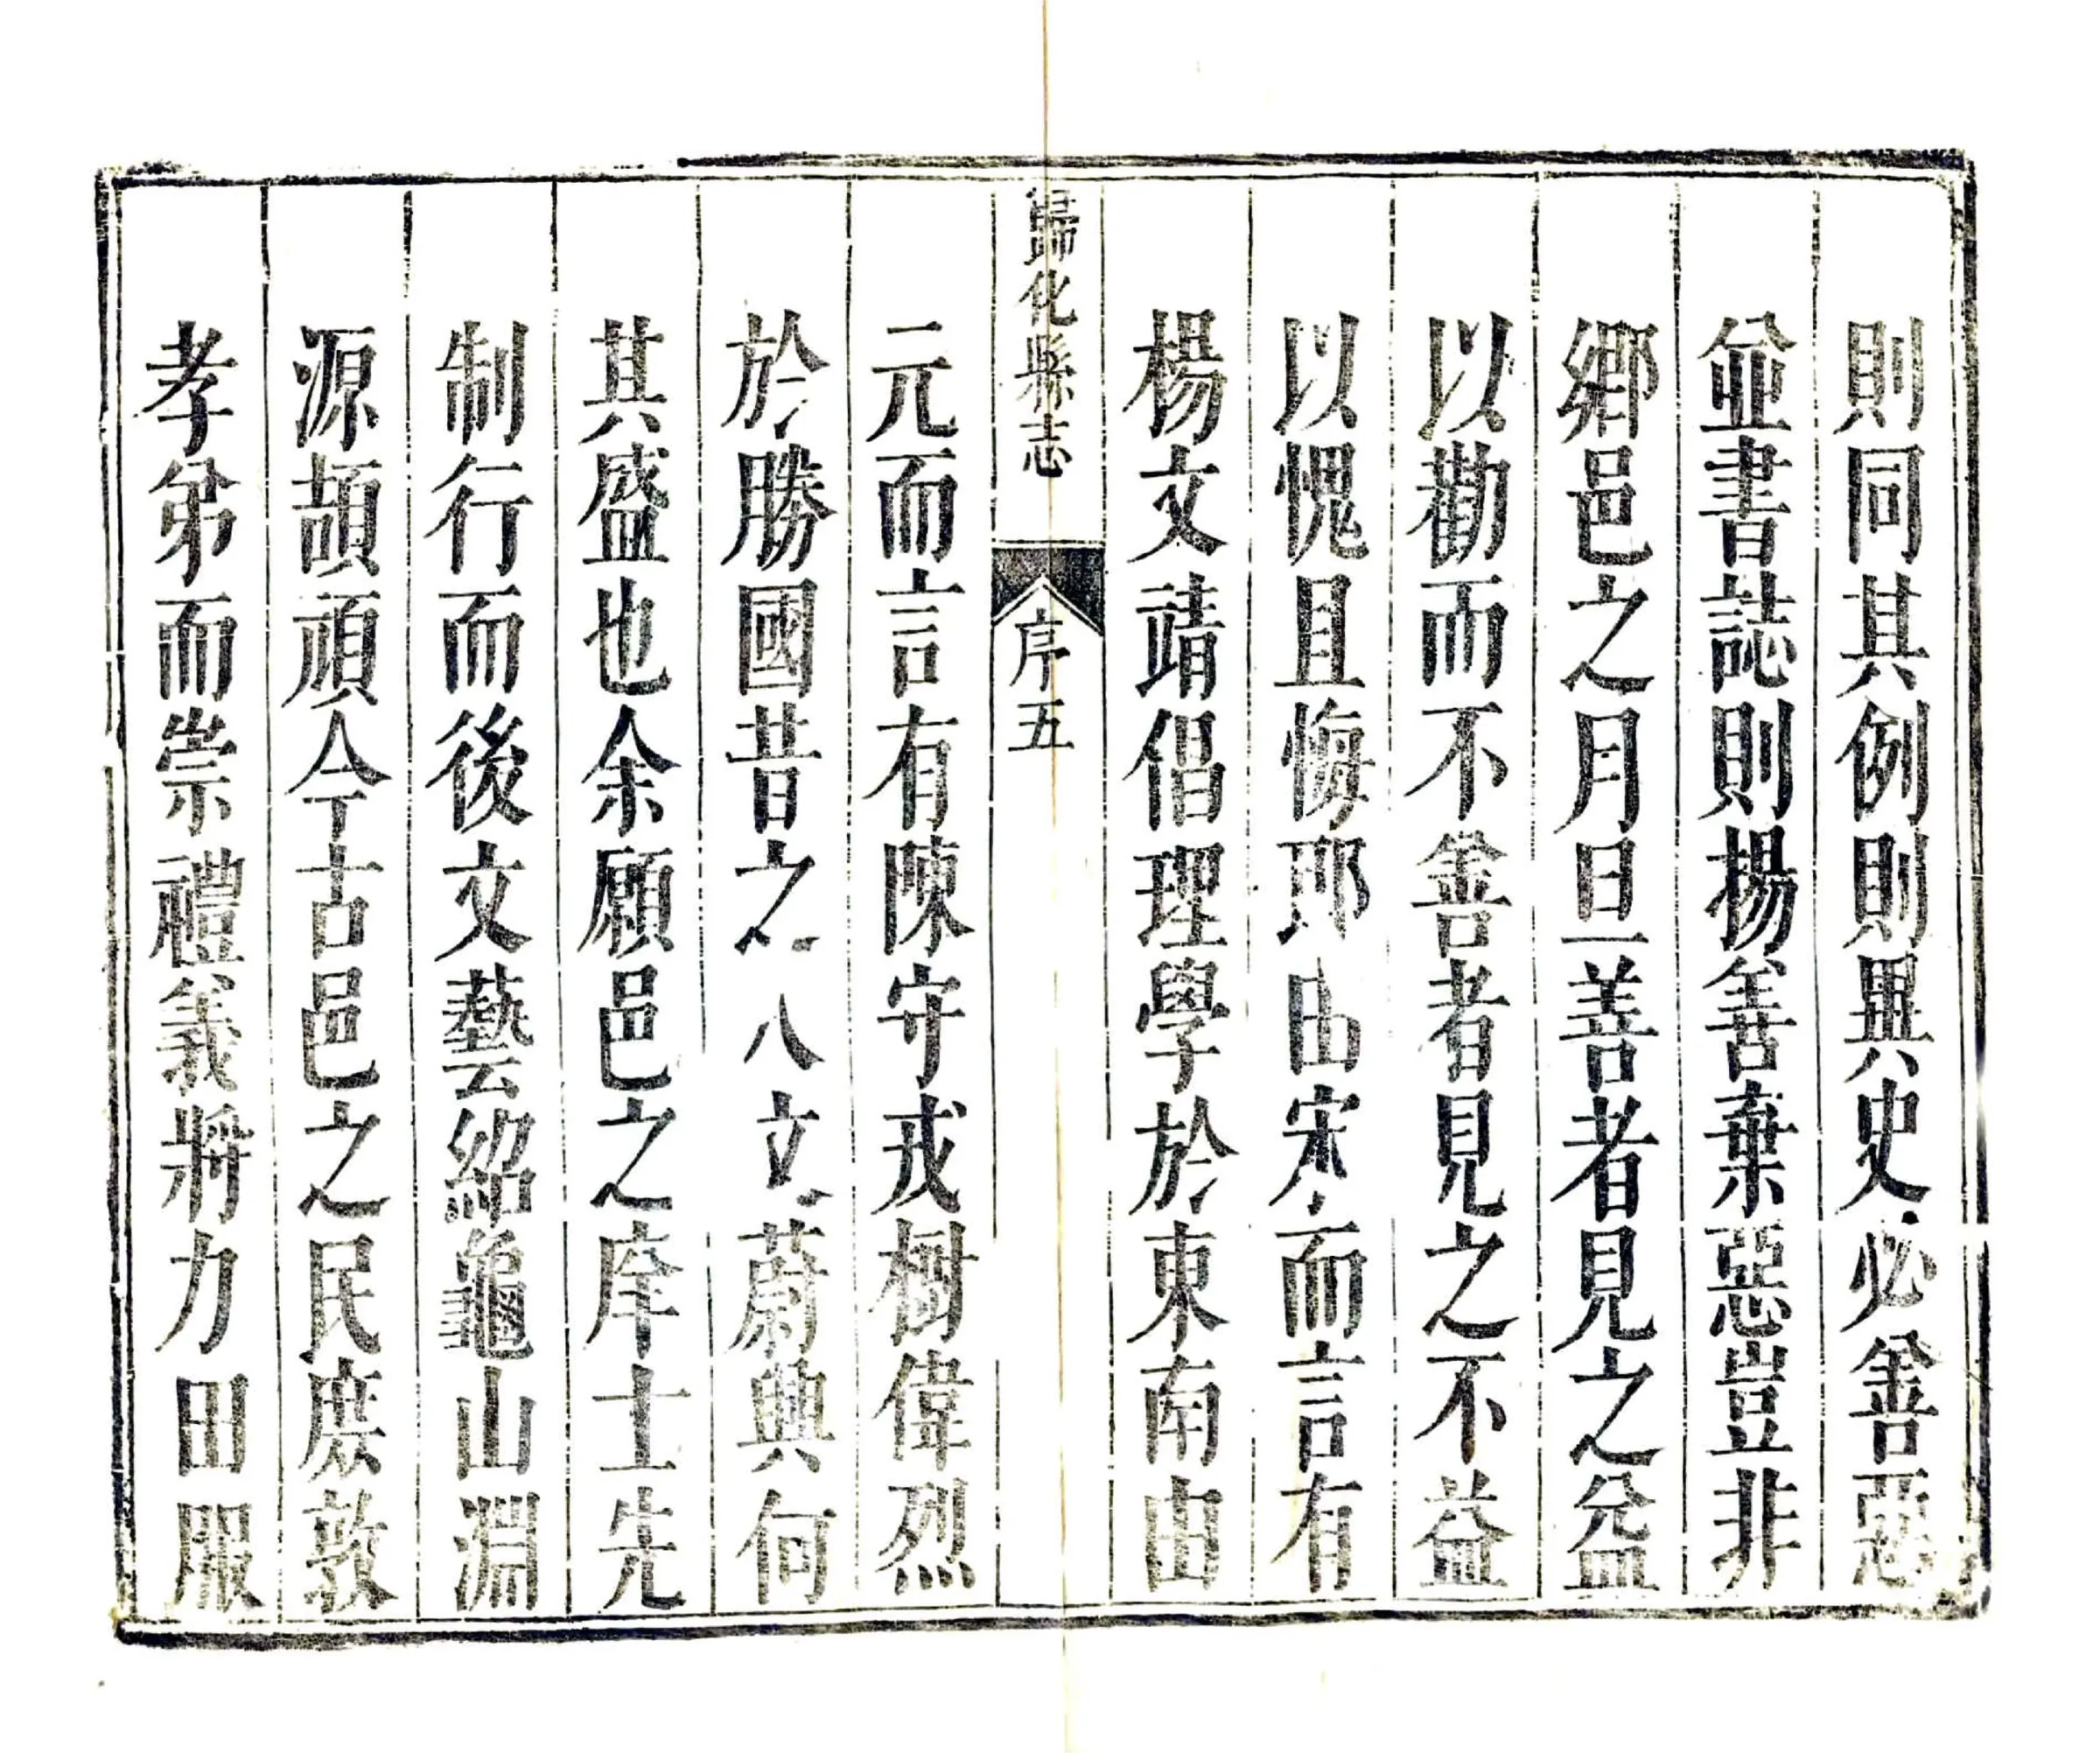 則同其例則異史必善惡
並書誌則揚善棄惡豈非
鄉邑之月旦善者見之益
以勸而不善者見之不益
以愧且悔耶由宋而言有
楊文靖倡理學於東南由
歸化縣志
序五
元而言有陳守戎樹偉烈
於勝國昔之人文蔚興何
其盛也余願邑之庠士先
制行而後文藝紹龜山淵
源頡頏今古邑之民庶敦
孝弟而崇禮義將力田服